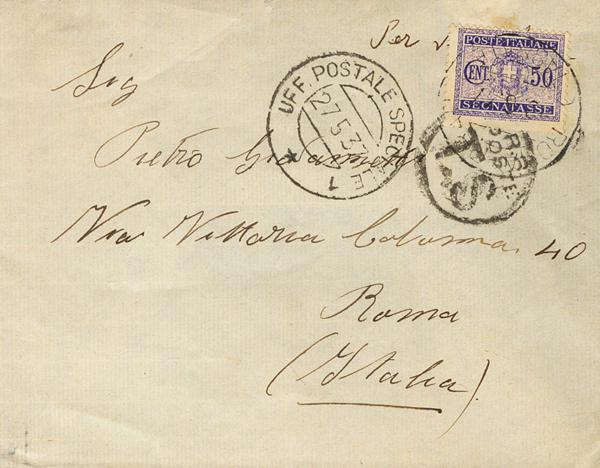 Per
POSTE ITALIANE
CENT. 50
SEGNATASSE
Sig
UFF. POSTALE SPECIALE 1
27.5.37
T
Pietro
Via Vittoria Colonna. 40
Roma
(Italia)